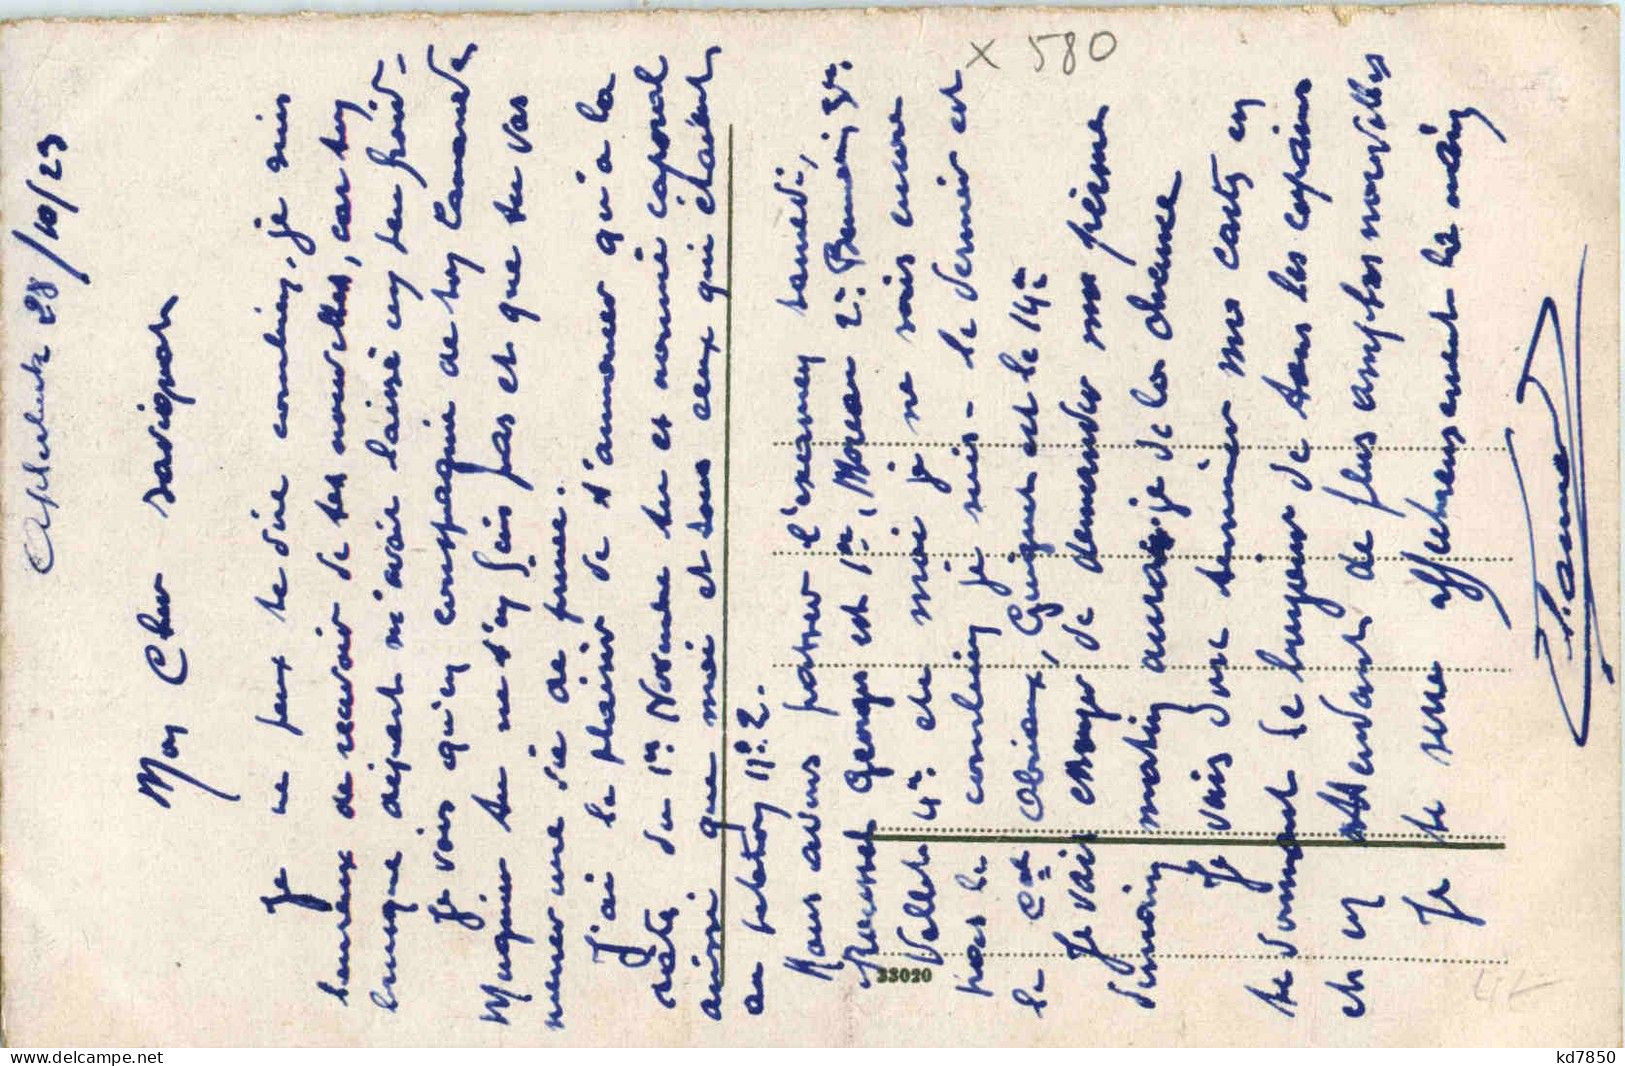 28/10/23
Mon Cher
Je ne peux te dire combien, je suis
heureux de recevoir de tes nouvelles, car ton
brusque départ m'avait laissé un peu froid-
Je vois qu'en compagnie de ton Camarade
Muguier tu ne t'en fais pas et que tu vas
mener une vie de prince.
J'ai le plaisir de t'annoncer qu'à la
date du 1er Novembre tu es nommé caporal
ainsi que moi et tous ceux qui étaient
au peloton No 2.
Nous avons passer l'examen samedi,
Georges est 1er, Moreau 2e, 3e.
Vallet 4e. et moi je ne sais encore
pas le combien je suis - le dernier est
le Cal Guiguet est le 14e
Je vais essayer de demander une perme
demain matin aurai-je de la chance
Je vais donc terminer ma carte en
te donnant le bonjour de tous les copains
et en attendant de plus amples nouvelles
Je te serre affectueusement la main
x 580
33020
www.delcampe.net
kd7850